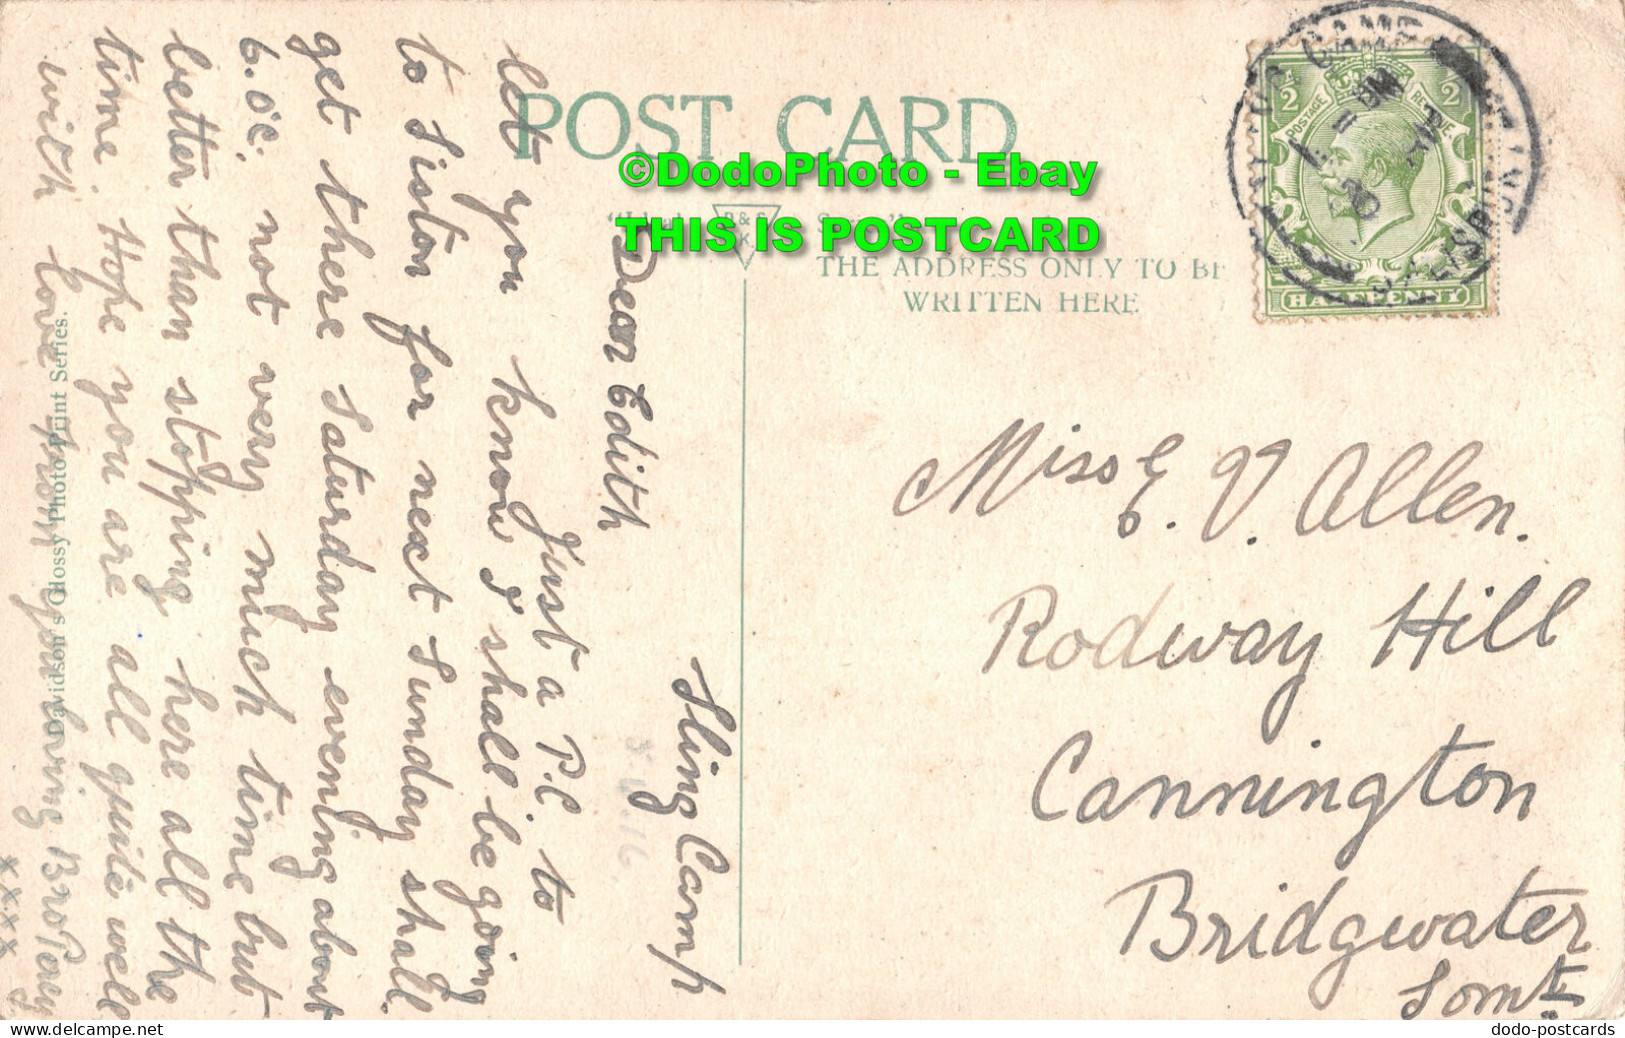 POST CARD
©DodoPhoto - Ebay
THIS IS POSTCARD
THE ADDRESS ONLY TO BE
WRITTEN HERE.
POSTAGE
REVENUE
HALFPENNY
SALISBURY
Sling Camp
5.
.16
Dear Edith
Just a P.C. to
let you know I shall be going
to Siston for next Sunday shall
get there Saturday evening about
6.oc. not very much time but
better than stopping here all the
time. Hope you are all quite well
with love from your loving Bro Percy
x x x x
Davidson's Glossy Photo-Print Series.
Miss E. V. Allen.
Rodway Hill
Cannington
Bridgwater
Somt.
Visit Delcampe.net
dodo-postcards